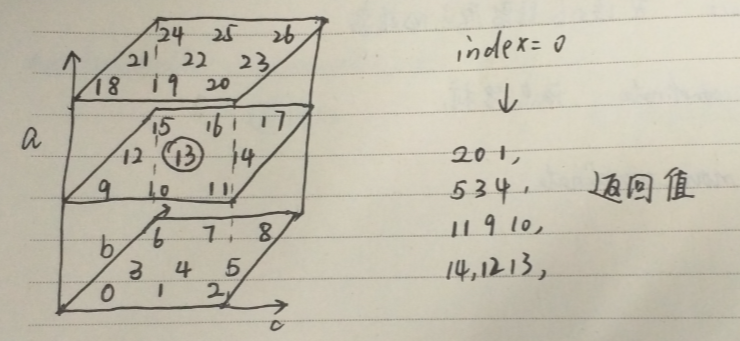 24 25 26
21 22 23
18 19 20
15 16 17
a 12 13 14
9 10 11
b 6 7 8
3 4 5
0 1 2
c
index=0
↓
2 0 1,
5 3 4, 返回值
11 9 10,
14,12 13,